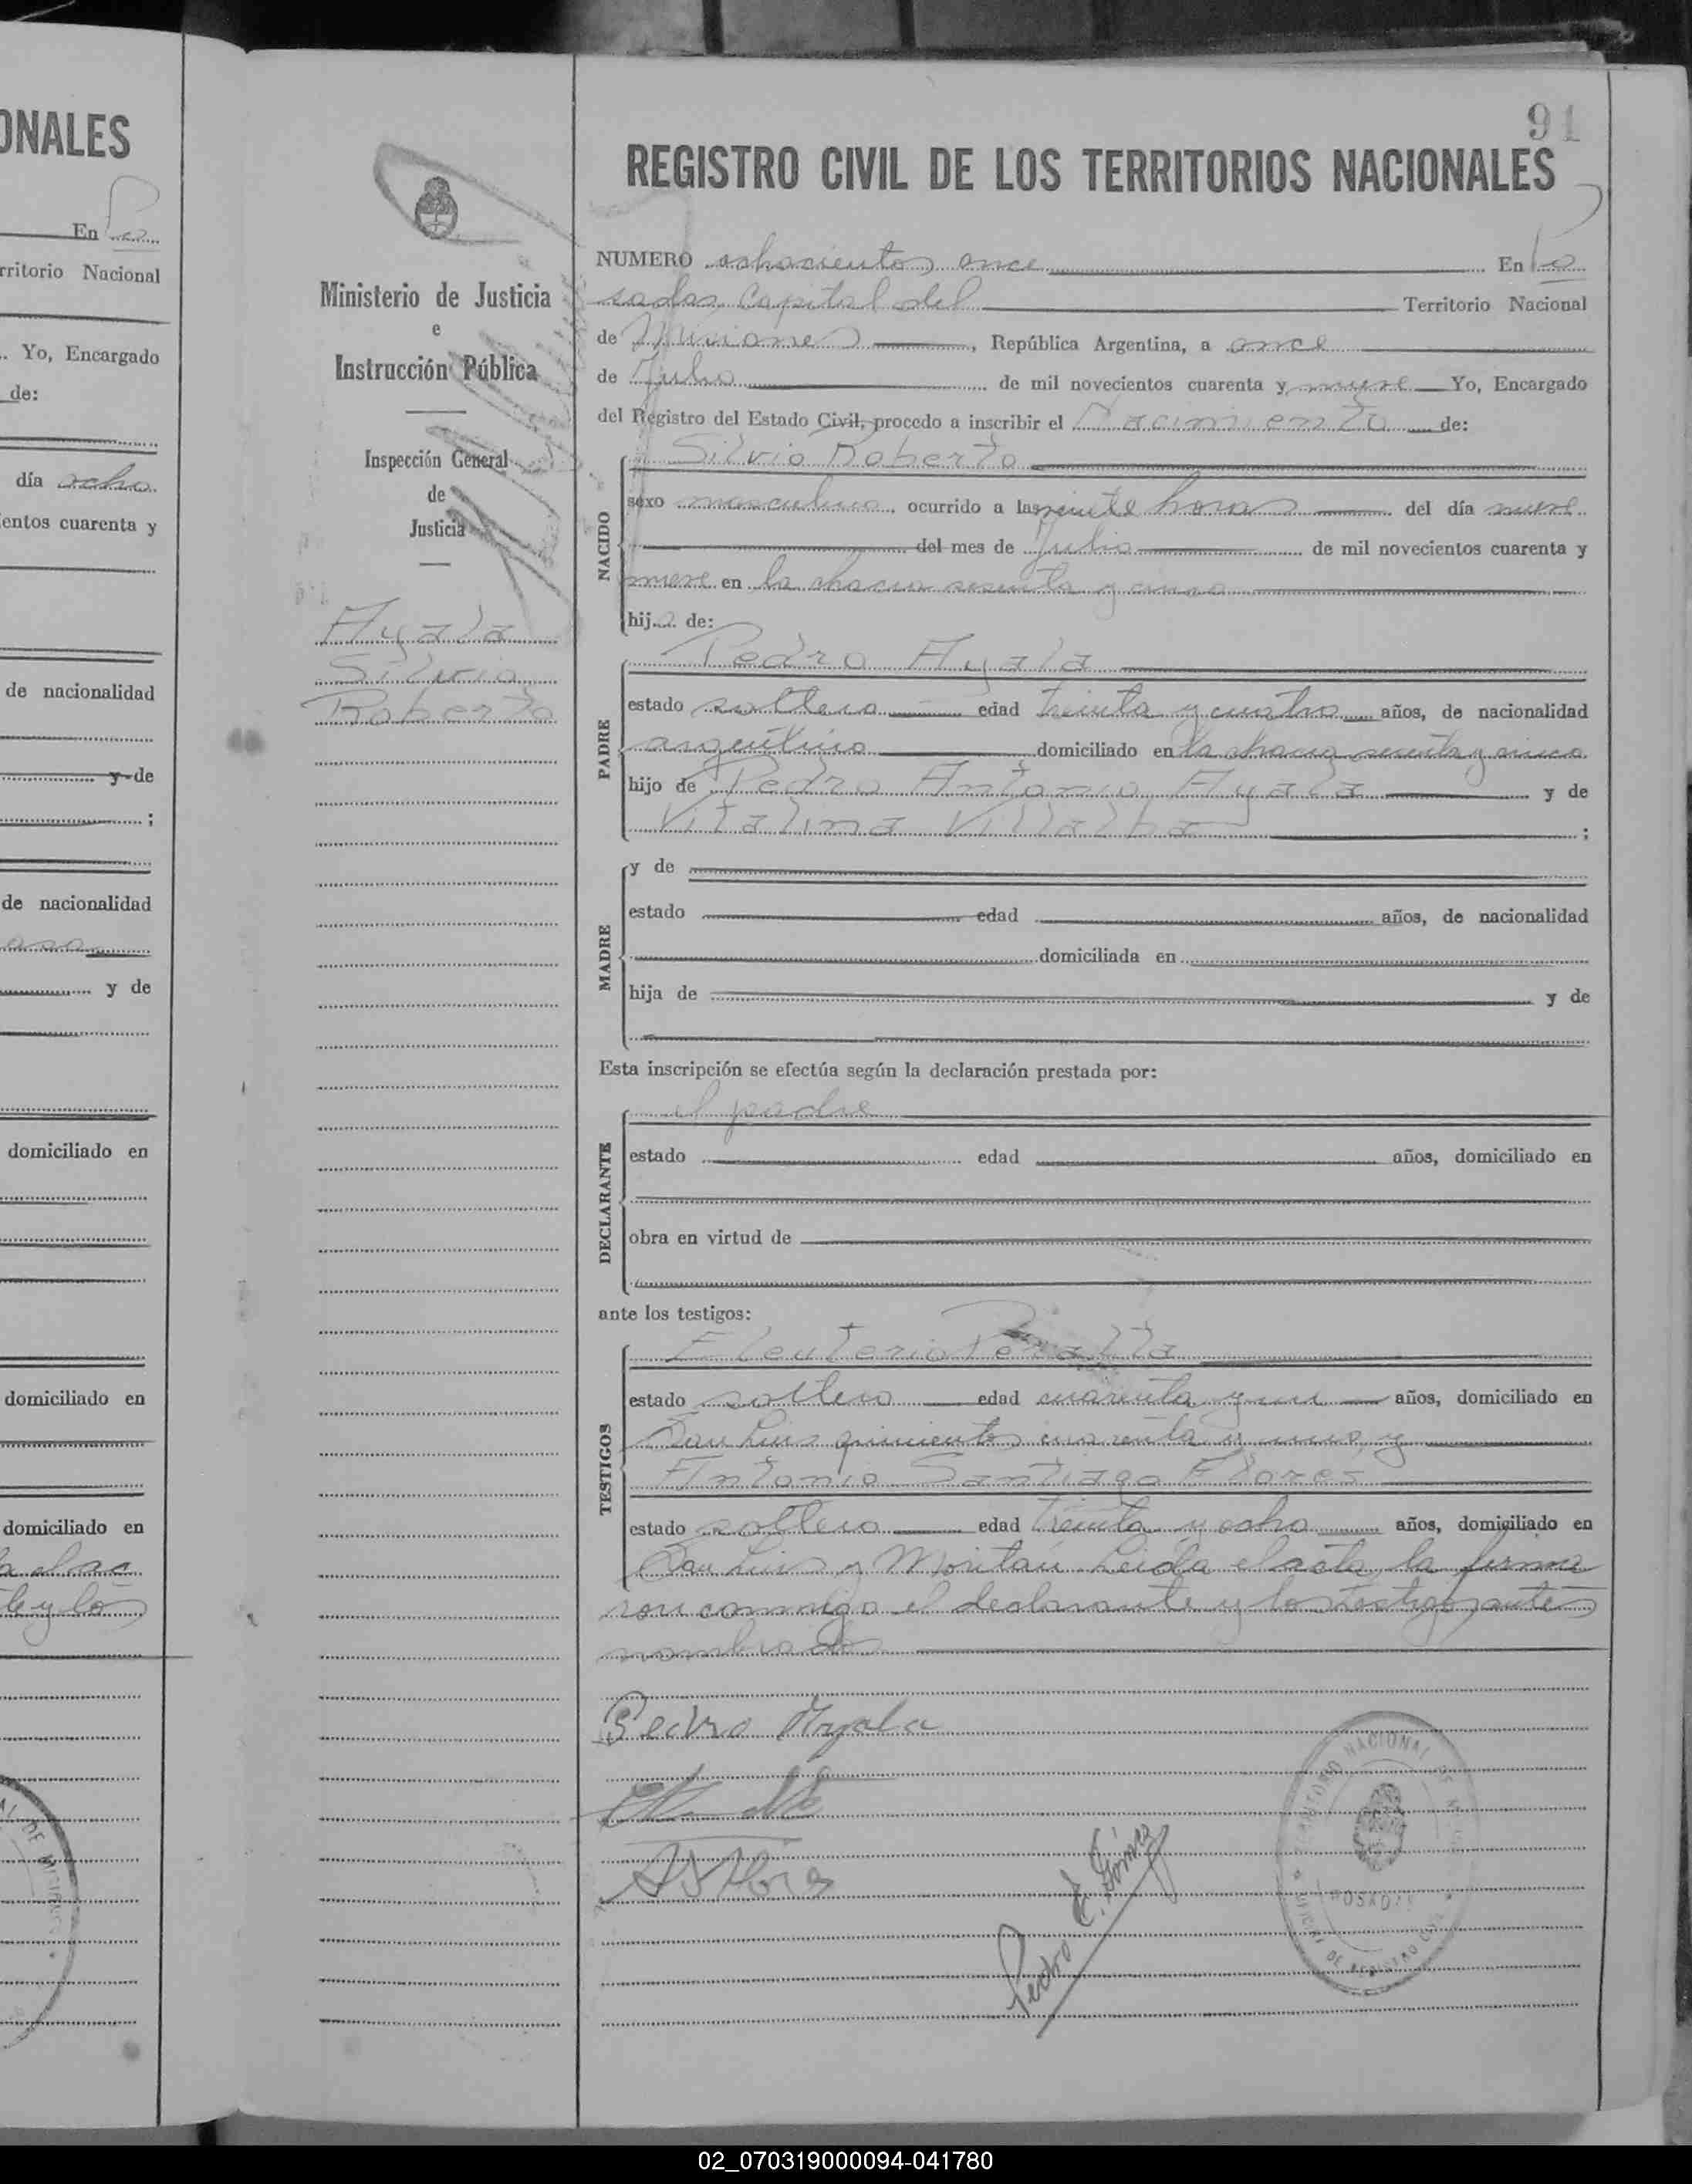 ONALES
En Po
rritorio Nacional
Yo, Encargado
de:
día ocho
entos cuarenta y
de nacionalidad
y de
;
de nacionalidad
y de
domiciliado en
domiciliado en
domiciliado en
ley los
Ministerio de Justicia
e
Instrucción Pública
Inspección General
de
Justicia
Ayala
Silvio
Roberto
91
REGISTRO CIVIL DE LOS TERRITORIOS NACIONALES
NUMERO ochocientos once En Po
sadas Capital del Territorio Nacional
de Misiones, República Argentina, a once
de Julio de mil novecientos cuarenta y nueve Yo, Encargado
del Registro del Estado Civil, procedo a inscribir el Nacimiento de:
NACIDO
Silvio Roberto
sexo masculino, ocurrido a las veinte horas del día nueve
del mes de Julio de mil novecientos cuarenta y
nueve en la chacra sesenta y cinco
hijo de:
PADRE
Pedro Ayala
estado soltero edad treinta y cuatro años, de nacionalidad
argentino domiciliado en la chacra sesenta y cinco
hijo de Pedro Antonio Ayala y de
Vitalina Villalba ;
MADRE
y de
estado edad años, de nacionalidad
domiciliada en
hija de y de
Esta inscripción se efectúa según la declaración prestada por:
DECLARANTE
el padre
estado edad años, domiciliado en
obra en virtud de
ante los testigos:
TESTIGOS
Eleuterio Peralta
estado soltero edad cuarenta y un años, domiciliado en
San Luis quinientos cuarenta y uno, y
Antonio Santiago Flores
estado soltero edad treinta y ocho años, domiciliado en
San Luis y Moritán Leida el acta, la firma
ron conmigo el declarante y los testigos antes
nombrados
Pedro Ayala
Pedro E. Giménez
TERRITORIO NACIONAL DE MISIONES
POSADAS
OFICINA DE REGISTRO CIVIL
02_070319000094-041780